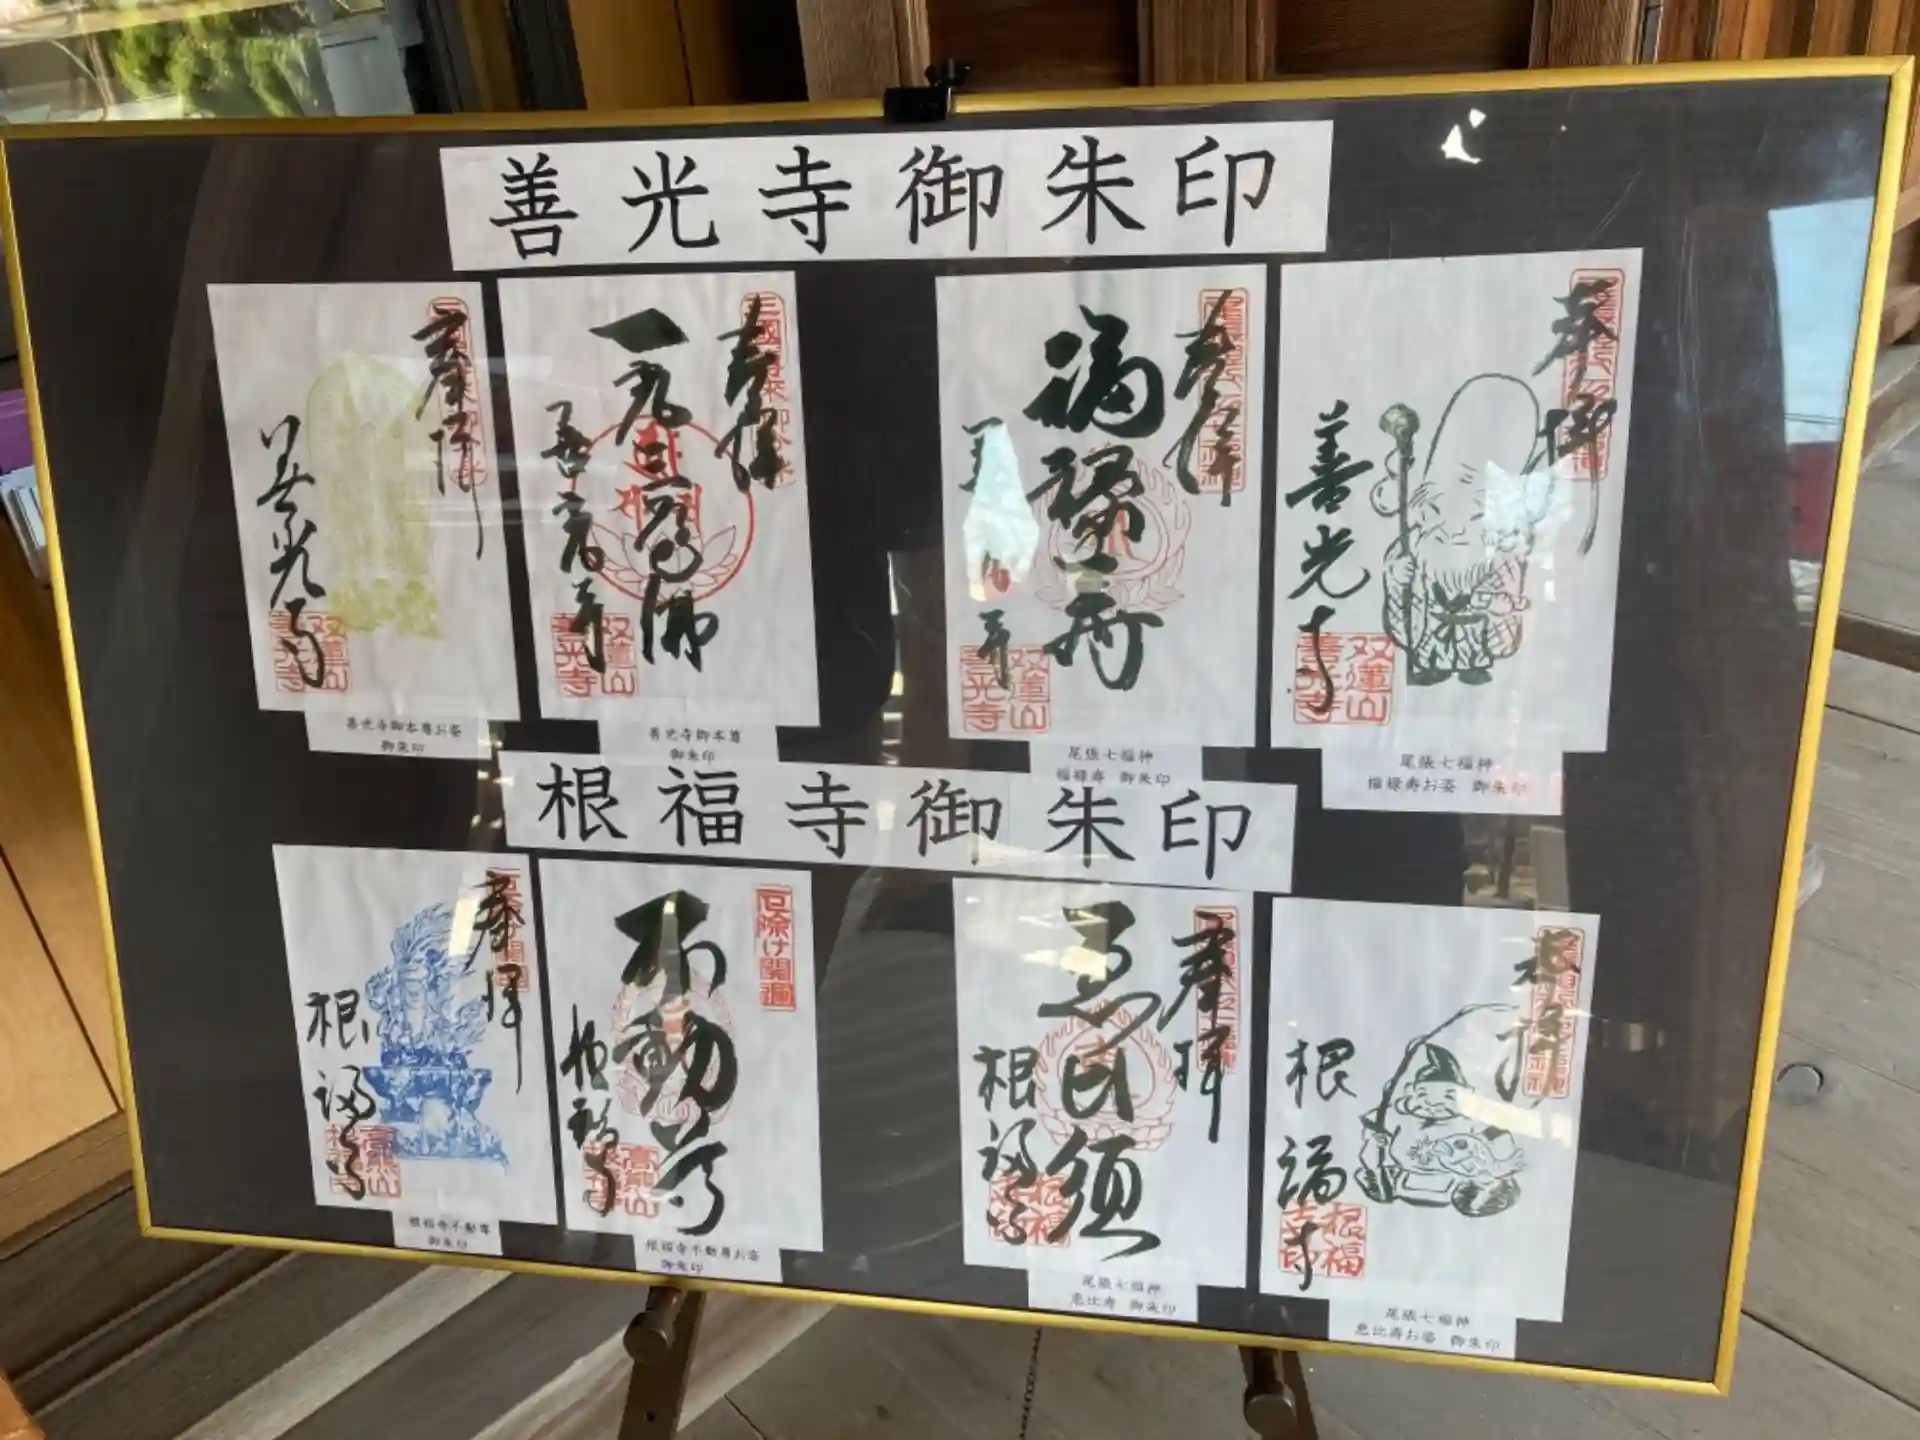 善光寺御朱印
奉拝
善光寺
双蓮山
善光寺
善光寺御本尊お姿
御朱印
奉拝
一光三尊佛
善光寺
双蓮山
善光寺
善光寺御本尊
御朱印
奉拝
福禄寿
双蓮山
善光寺
尾張七福神
福禄寿 御朱印
奉拝
善光寺
双蓮山
善光寺
尾張七福神
福禄寿お姿 御朱印
根福寺御朱印
奉拝
根福寺
根福寺不動尊
御朱印
厄除け開運
不動尊
根福寺
根福寺不動尊お姿
御朱印
奉拝
恵比須
根福寺
尾張七福神
恵比寿 御朱印
奉拝
根福寺
根福
寺印
尾張七福神
恵比寿お姿 御朱印